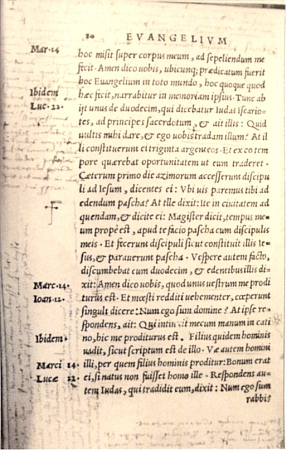 80 EVANGELIVM
Mar. 14
hoc misit super corpus meum, ad sepeliendum me
fecit. Amen dico uobis, ubicunq; prædicatum fuerit
hoc Euangelium in toto mundo, hoc quoque quod
Ibidem
hæc fecit, narrabitur in memoriam ipsius. Tunc ab
Luc. 22.
ijt unus de duodecim, qui dicebatur Iudas iscario-
tes, ad principes sacerdotum, & ait illis: Quid
uultis mihi dare, & ego uobis tradam illum? At il
li constituerunt ei triginta argenteos. Et ex eo tem
pore quærebat oportunitatem ut eum traderet.
Cæterum primo die azimorum accesserunt discipu
li ad Iesum, dicentes ei: Vbi uis paremus tibi ad
edendum pascha? At ille dixit: Ite in ciuitatem ad
quendam, & dicite ei: Magister dicit, tempus me/
um propè est, apud te facio pascha cum discipulis
meis. Et fecerunt discipuli sicut constituit illis Ie/
sus, & parauerunt pascha. Vespere autem facto,
discumbebat cum duodecim, & edentibus illis di
Marc. 14.
xit: Amen dico uobis, quod unus uestrum me prodi
Ioan. 12.
turus est. Et mœsti redditi uehementer, cœperunt
singuli dicere: Num ego sum domine? At ipse re/
spondens, ait: Qui intin it mecum manum in cati
Ibidem.
no, hic me proditurus est. Filius quidem hominis
uadit, sicut scriptum est de illo. Væ autem homini
Marci 14.
illi, per quem filius hominis proditur: Bonum erat
Lucæ 22.
ei, si natus non fuisset homo ille. Respondens au/
tem Iudas, qui tradidit eum, dixit: Num ego sum
rabbi